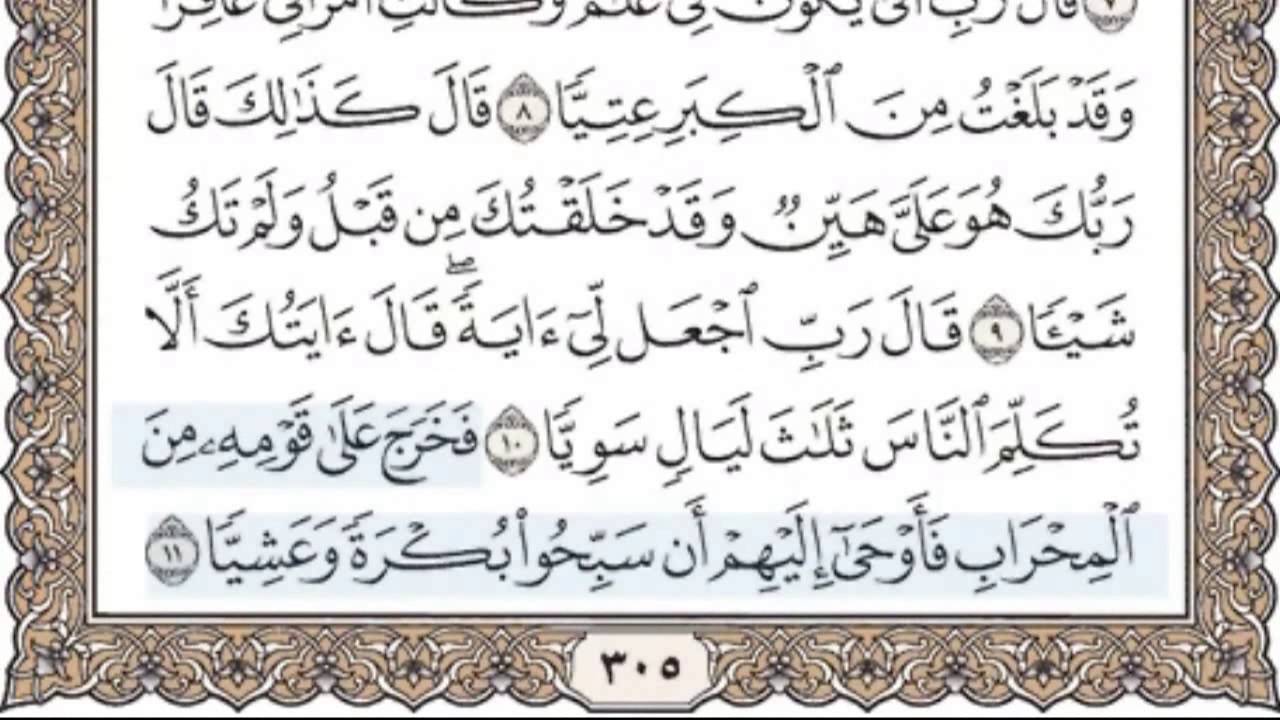 ٧ قَالَ رَبِّ أَنَّىٰ يَكُونُ لِي غُلَٰمٌ وَكَانَتِ ٱمۡرَأَتِي عَاقِرٗا
وَقَدۡ بَلَغۡتُ مِنَ ٱلۡكِبَرِ عِتِيّٗا ٨ قَالَ كَذَٰلِكَ قَالَ
رَبُّكَ هُوَ عَلَيَّ هَيِّنٞ وَقَدۡ خَلَقۡتُكَ مِن قَبۡلُ وَلَمۡ تَكُ
شَيۡـٔٗا ٩ قَالَ رَبِّ ٱجۡعَل لِّيٓ ءَايَةٗۖ قَالَ ءَايَتُكَ أَلَّا
تُكَلِّمَ ٱلنَّاسَ ثَلَٰثَ لَيَالٖ سَوِيّٗا ١٠ فَخَرَجَ عَلَىٰ قَوۡمِهِۦ مِنَ
ٱلۡمِحۡرَابِ فَأَوۡحَىٰٓ إِلَيۡهِمۡ أَن سَبِّحُواْ بُكۡرَةٗ وَعَشِيّٗا ١١
٣٠٥